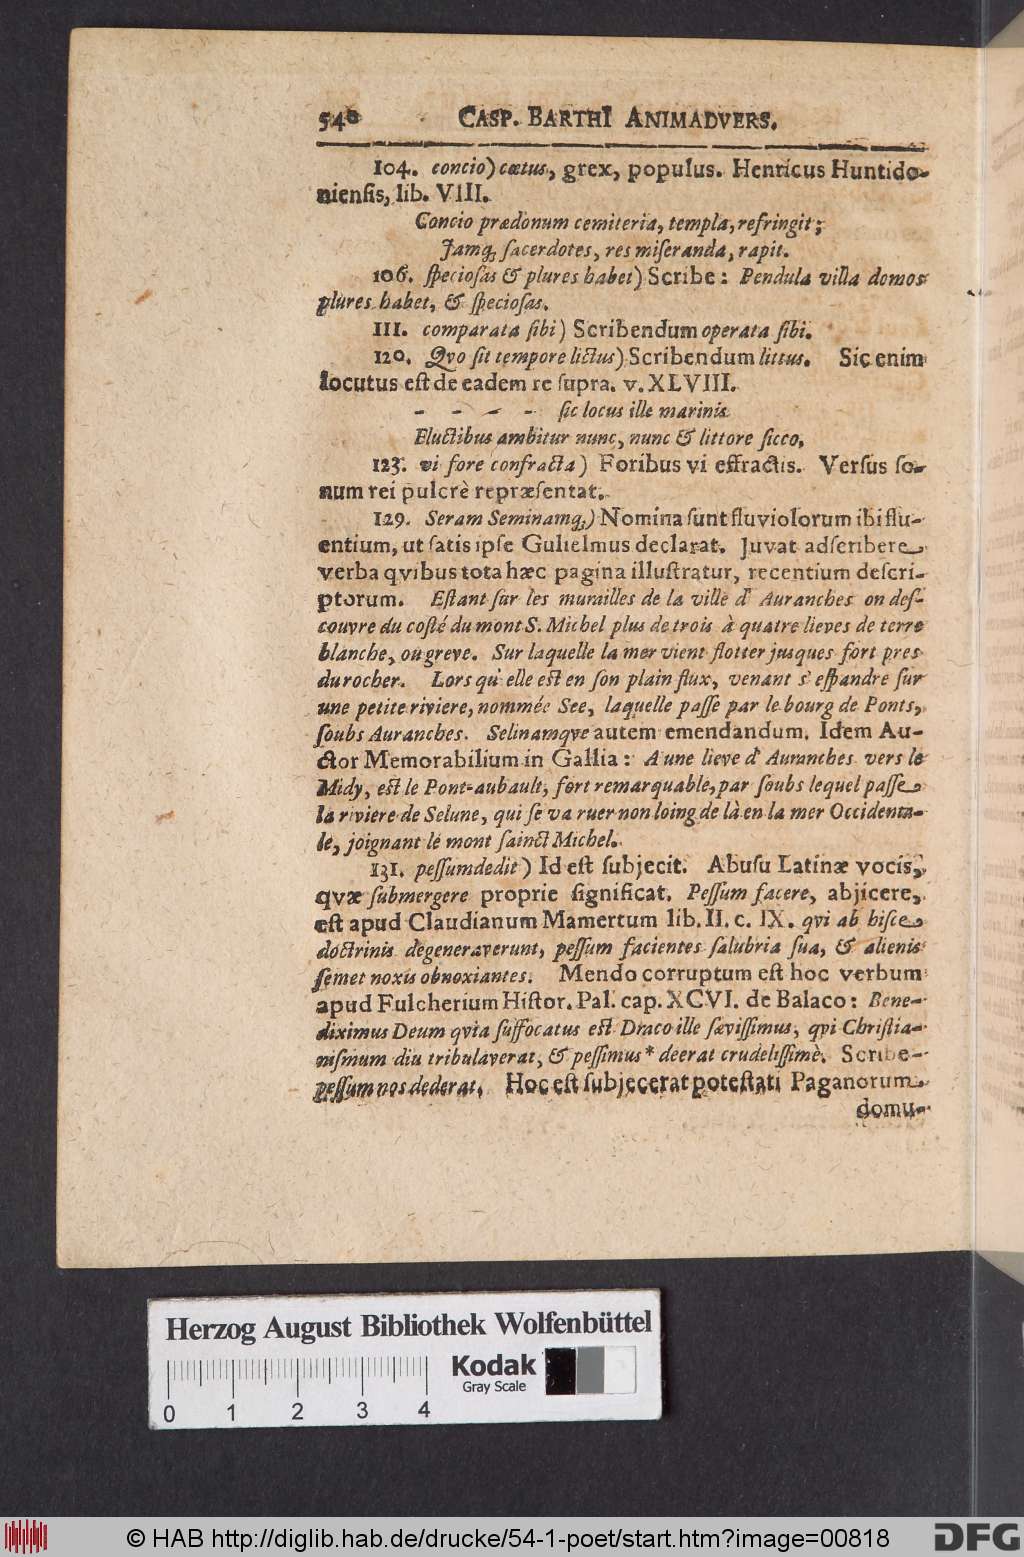 540 CASP. BARTHI ANIMADVERS.
104. concio) cœtus, grex, populus. Henricus Huntido-
niensis, lib. VIII.
Concio prædonum cemiteria, templa, refringit;
Jamq; sacerdotes, res miseranda, rapit.
106. speciosas & plures habet) Scribe: Pendula villa domos
plures habet, & speciosas.
111. comparata sibi) Scribendum operata sibi.
120. Qvo sit tempore lictus) Scribendum littus. Sic enim
locutus est de eadem re supra. v. XLVIII.
- - - - sic locus ille marinis
Fluctibus ambitur nunc, nunc & littore sicco.
123. vi fore confracta) Foribus vi effractis. Versus so-
num rei pulcrè repræsentat.
129. Seram Seminamq;) Nomina sunt fluviolorum ibi flu-
entium, ut satis ipse Gulielmus declarat. Juvat adscribere
verba qvibus tota hæc pagina illustratur, recentium descri-
ptorum. Estant sur les murailles de la ville d' Auranches on des-
couvre du costé du mont S. Michel plus de trois à quatre lieves de terre
blanche, ou greve. Sur laquelle la mer vient flotter jusques fort pres
du rocher. Lors qu' elle est en son plain flux, venant s' espandre sur
une petite riviere, nommée See, laquelle passe par le bourg de Ponts,
soubs Auranches. Selinamqve autem emendandum. Idem Au-
ctor Memorabilium in Gallia: A une lieve d' Auranches vers le
Midy, est le Pont-aubault, fort remarquable, par soubs lequel passe
la riviere de Selune, qui se va ruer non loing de là en la mer Occidenta-
le, joignant le mont sainct Michel.
131. pessumdedit) Id est subjecit. Abusu Latinæ vocis,
qvæ submergere proprie significat. Pessum facere, abjicere,
est apud Claudianum Mamertum lib. II. c. IX. qvi ab hisce
doctrinis degeneraverunt, pessum facientes salubria sua, & alienis
semet noxis obnoxiantes. Mendo corruptum est hoc verbum
apud Fulcherium Histor. Pal. cap. XCVI. de Balaco: Bene-
diximus Deum qvia suffocatus est Draco ille sævissimus, qvi Christia-
nismum diu tribulaverat, & pessimus* deerat crudelissimè. Scribe
pessum nos dederat. Hoc est subjecerat potestati Paganorum
domu-
Herzog August Bibliothek Wolfenbüttel
Kodak
Gray Scale
0 1 2 3 4
© HAB http://diglib.hab.de/drucke/54-1-poet/start.htm?image=00818
DFG